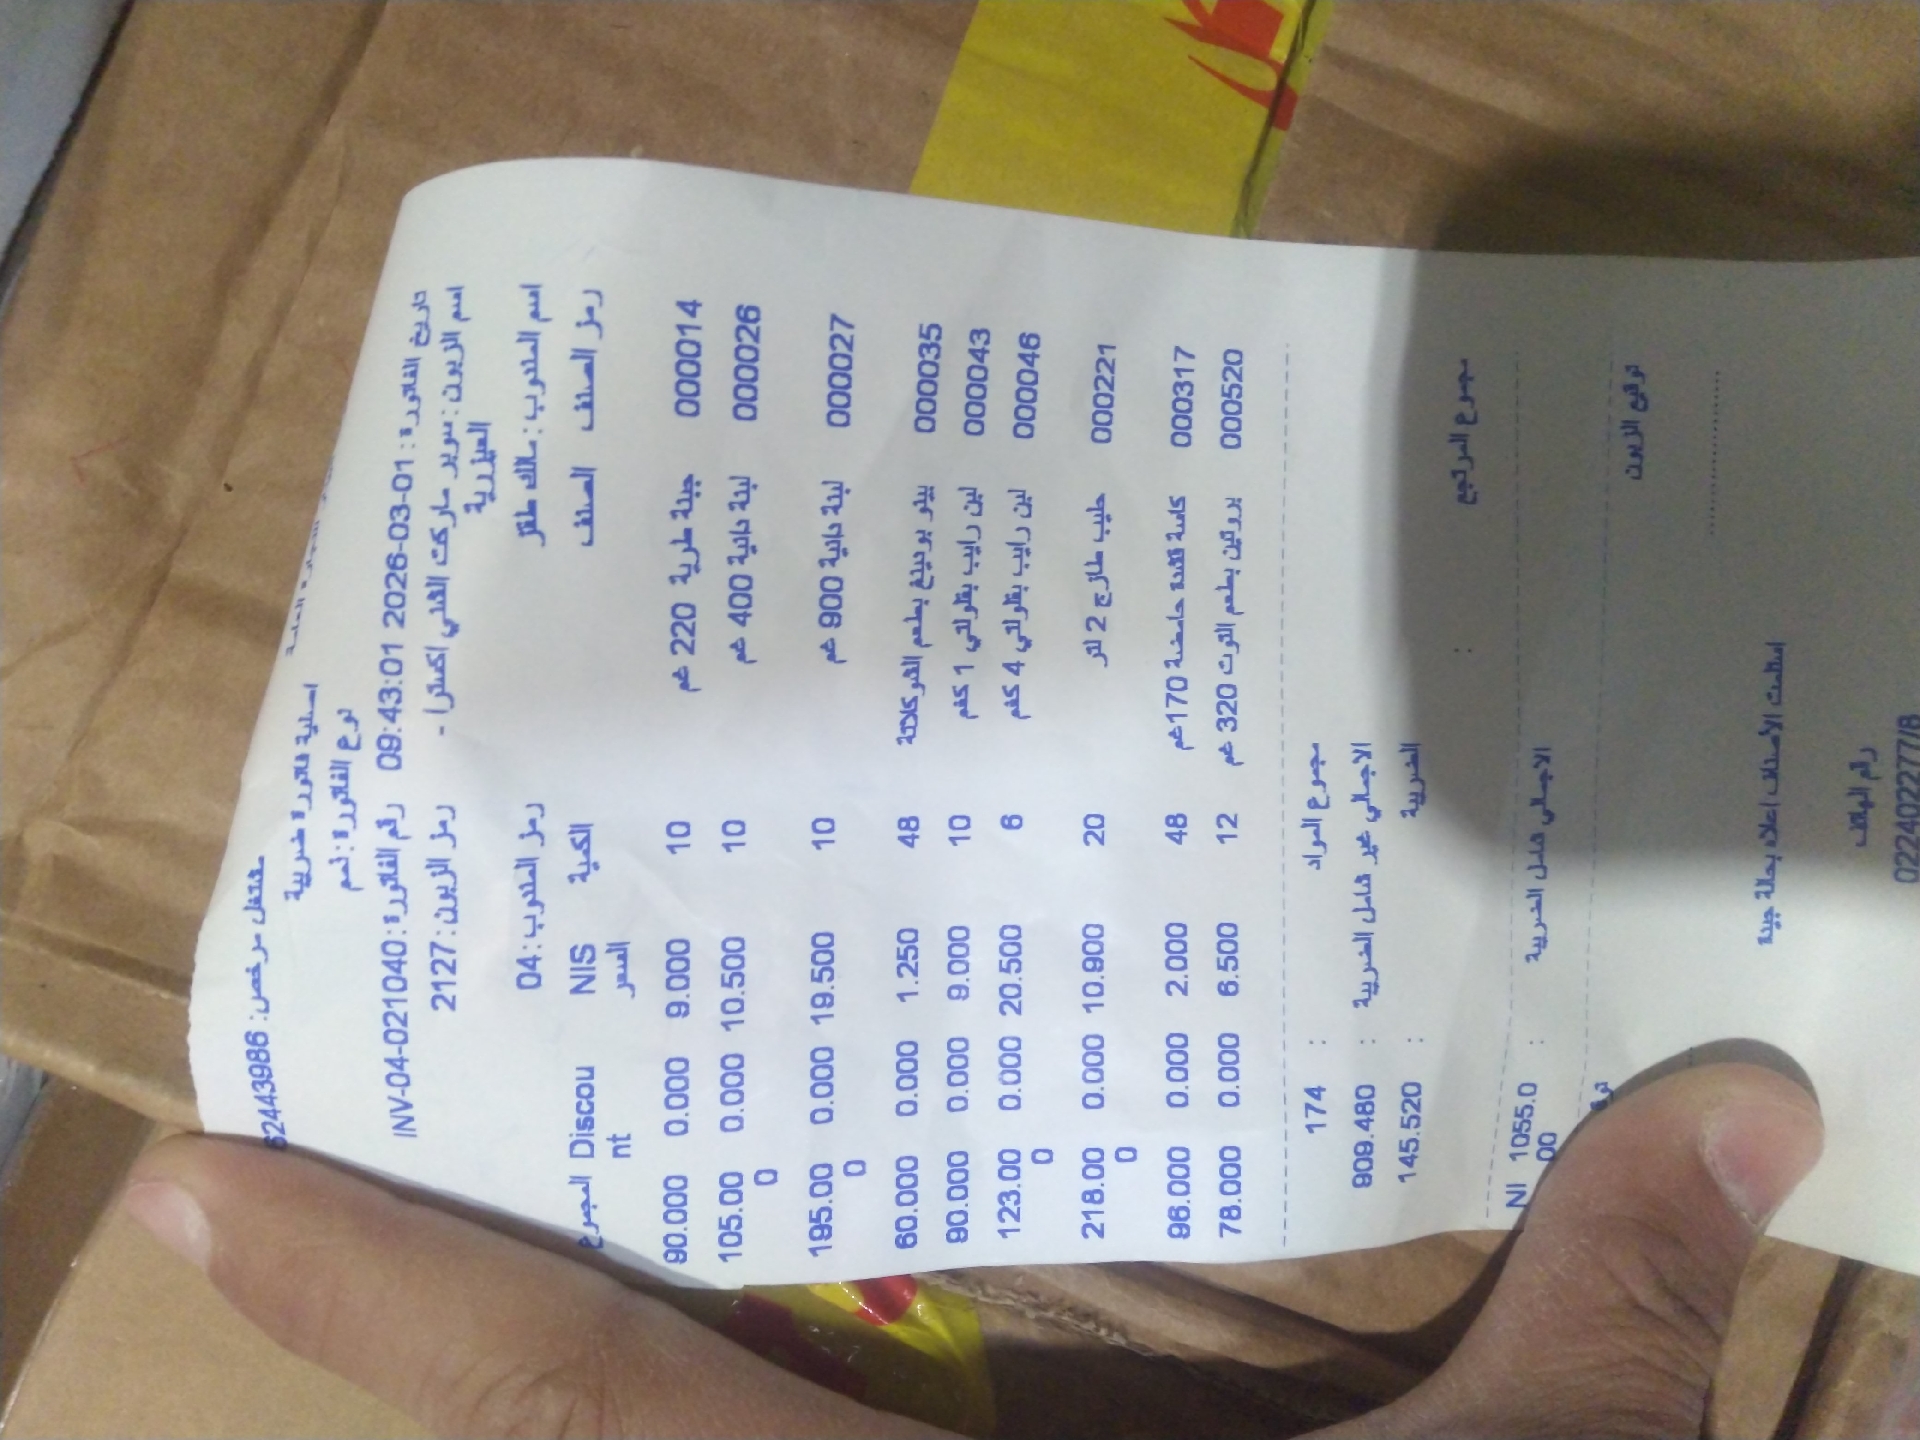 مشتغل مرخص: 562443986
اصلية فاتورة ضريبية
نوع الفاتورة: ذمم
رقم الفاتورة: INV-04-021040 تاريخ الفاتورة: 2026-03-01 09:43:01
رمز الزبون: 2127 اسم الزبون: سوبر ماركت الغني اكسترا -
العيزرية
رمز المندوب: 04 اسم المندوب: مالك طقز
رمز الصنف الصنف الكمية NIS Discou المجموع
السعر nt
000014 جبنة طرية 220 غم 10 9.000 0.000 90.000
000026 لبنة دانية 400 غم 10 10.500 0.000 105.00
0
000027 لبنة دانية 900 غم 10 19.500 0.000 195.00
0
000035 بيلو بودينغ بطعم الشوكلاتة 48 1.250 0.000 60.000
000043 لبن رايب بقلولتي 1 كغم 10 9.000 0.000 90.000
000046 لبن رايب بقلولتي 4 كغم 6 20.500 0.000 123.00
0
000221 حليب طازج 2 لتر 20 10.900 0.000 218.00
0
000317 كاسة قشدة حامضة 170غم 48 2.000 0.000 96.000
000520 بروتين بطعم التوت 320 غم 12 6.500 0.000 78.000
مجموع المواد : 174
الاجمالي غير شامل الضريبة : 909.480
الضريبة : 145.520
مجموع المرتجع :
الاجمالي شامل الضريبة : 1055.0 NI
00
توقيع الزبون
....................
استلمت الأصناف اعلاه بحالة جيدة
رقم الهاتف
022402277/8